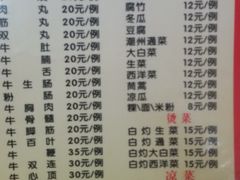 肉丸 20元/例
筋丸 20元/例
牛肚 20元/例
牛腩 20元/例
牛舌 20元/例
牛生肠 20元/例
粉肠 20元/例
牛胸肉 20元/例
牛骨髓 20元/例
牛脚筋 20元/例
牛百叶 20元/例
牛鞭 35元/例
牛双连 30元/例
牛心顶 30元/例
腐竹 12元/例
冬瓜 12元/例
豆腐 12元/例
潮州通菜 12元/例
大白菜 12元/例
生菜 12元/例
西洋菜 12元/例
茼蒿 12元/例
凉瓜 12元/例
粿\面\米粉 8元/例
烫菜
白灼生菜 15元/例
白灼通菜 15元/例
白灼大白菜 15元/例
白灼西洋菜 15元/例
凉菜